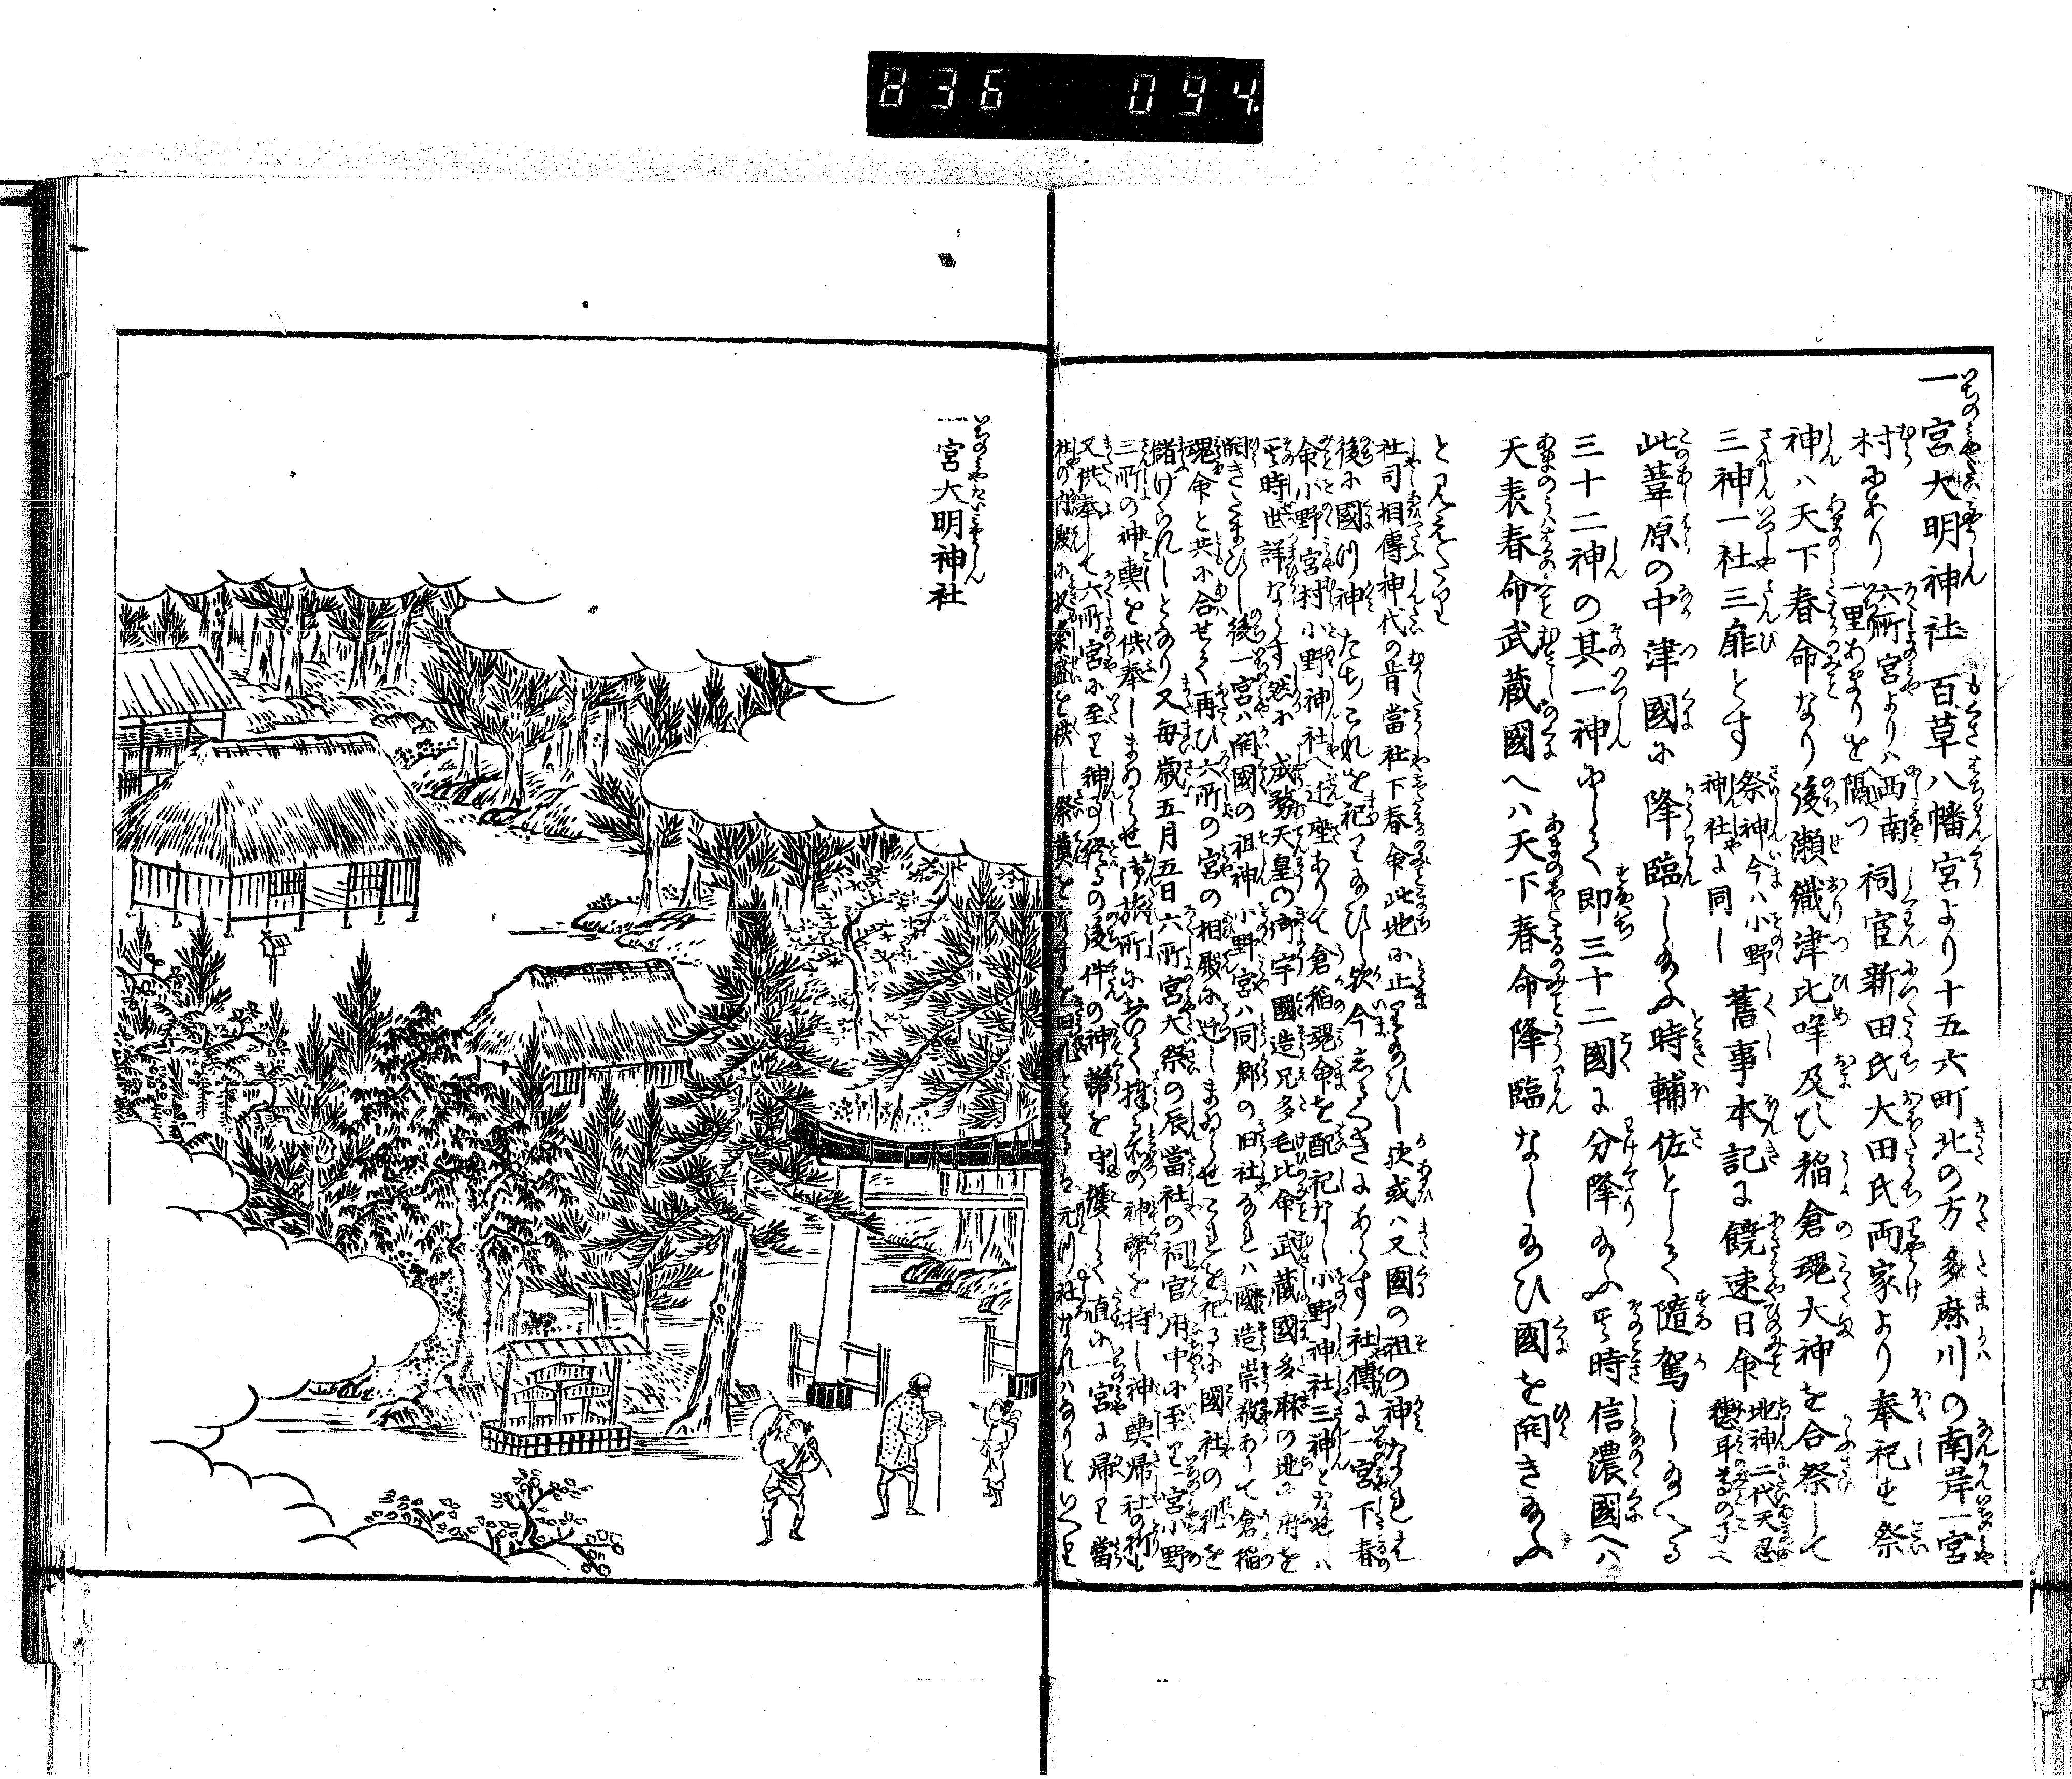 836 094
一宮大明神社 百草八幡宮より十五六町北の方多麻川の南岸一宮
村にあり 六所宮よりハ西南一里あまりを隔つ 祠官新田氏大田氏両家より奉祀す祭
神ハ天下春命なり後瀬織津比咩及ひ稲倉魂大神を合祭して
三神一社三扉とす 祭神今ハ小野神社に同し 舊事本記に饒速日命 地神二代天忍穂耳尊の子
此葦原の中津國に降臨し給ふ時輔佐として隨駕し給へる
三十二神の其一神にして即三十二國に分降給ふ其時信濃國へハ
天表春命武蔵國へハ天下春命降臨なし給ひ國を開き給ふ
とみえたり
社司相傳神代の昔當社下春命此地に止り給ひし欤或ハ又國の祖の神なれは
後に國川神たちこれを祀り給ひし欤今志るへきにあらす社傳に一宮下春
命小野宮村小野神社へ遷座ありて倉稲魂命を配祀なし小野神社三神となせしハ
其時世詳ならす然に成務天皇の御宇國造兄多毛比命武蔵國多麻の地に府を
開きたまひし後一宮ハ開國の祖神小野宮ハ同郷の旧社なれハ國造崇敬ありて倉稲
魂命と共に合せて再ひ六所の宮の相殿に遷しまゐらせこれを祀るに國社の礼を
儲けられしとなり又毎歳五月五日六所宮大祭の辰當社の祠官府中に至り一宮小野
三所の神輿を供奉しまゐらせ御旅所に於て捧る所の神幣を持し神輿帰社の
又供奉して六所宮に至り神事終るの後件の神幣を守護して直に一宮に帰り當
社の内殿に収め粢盛を供し祭奠を
一宮大明神社